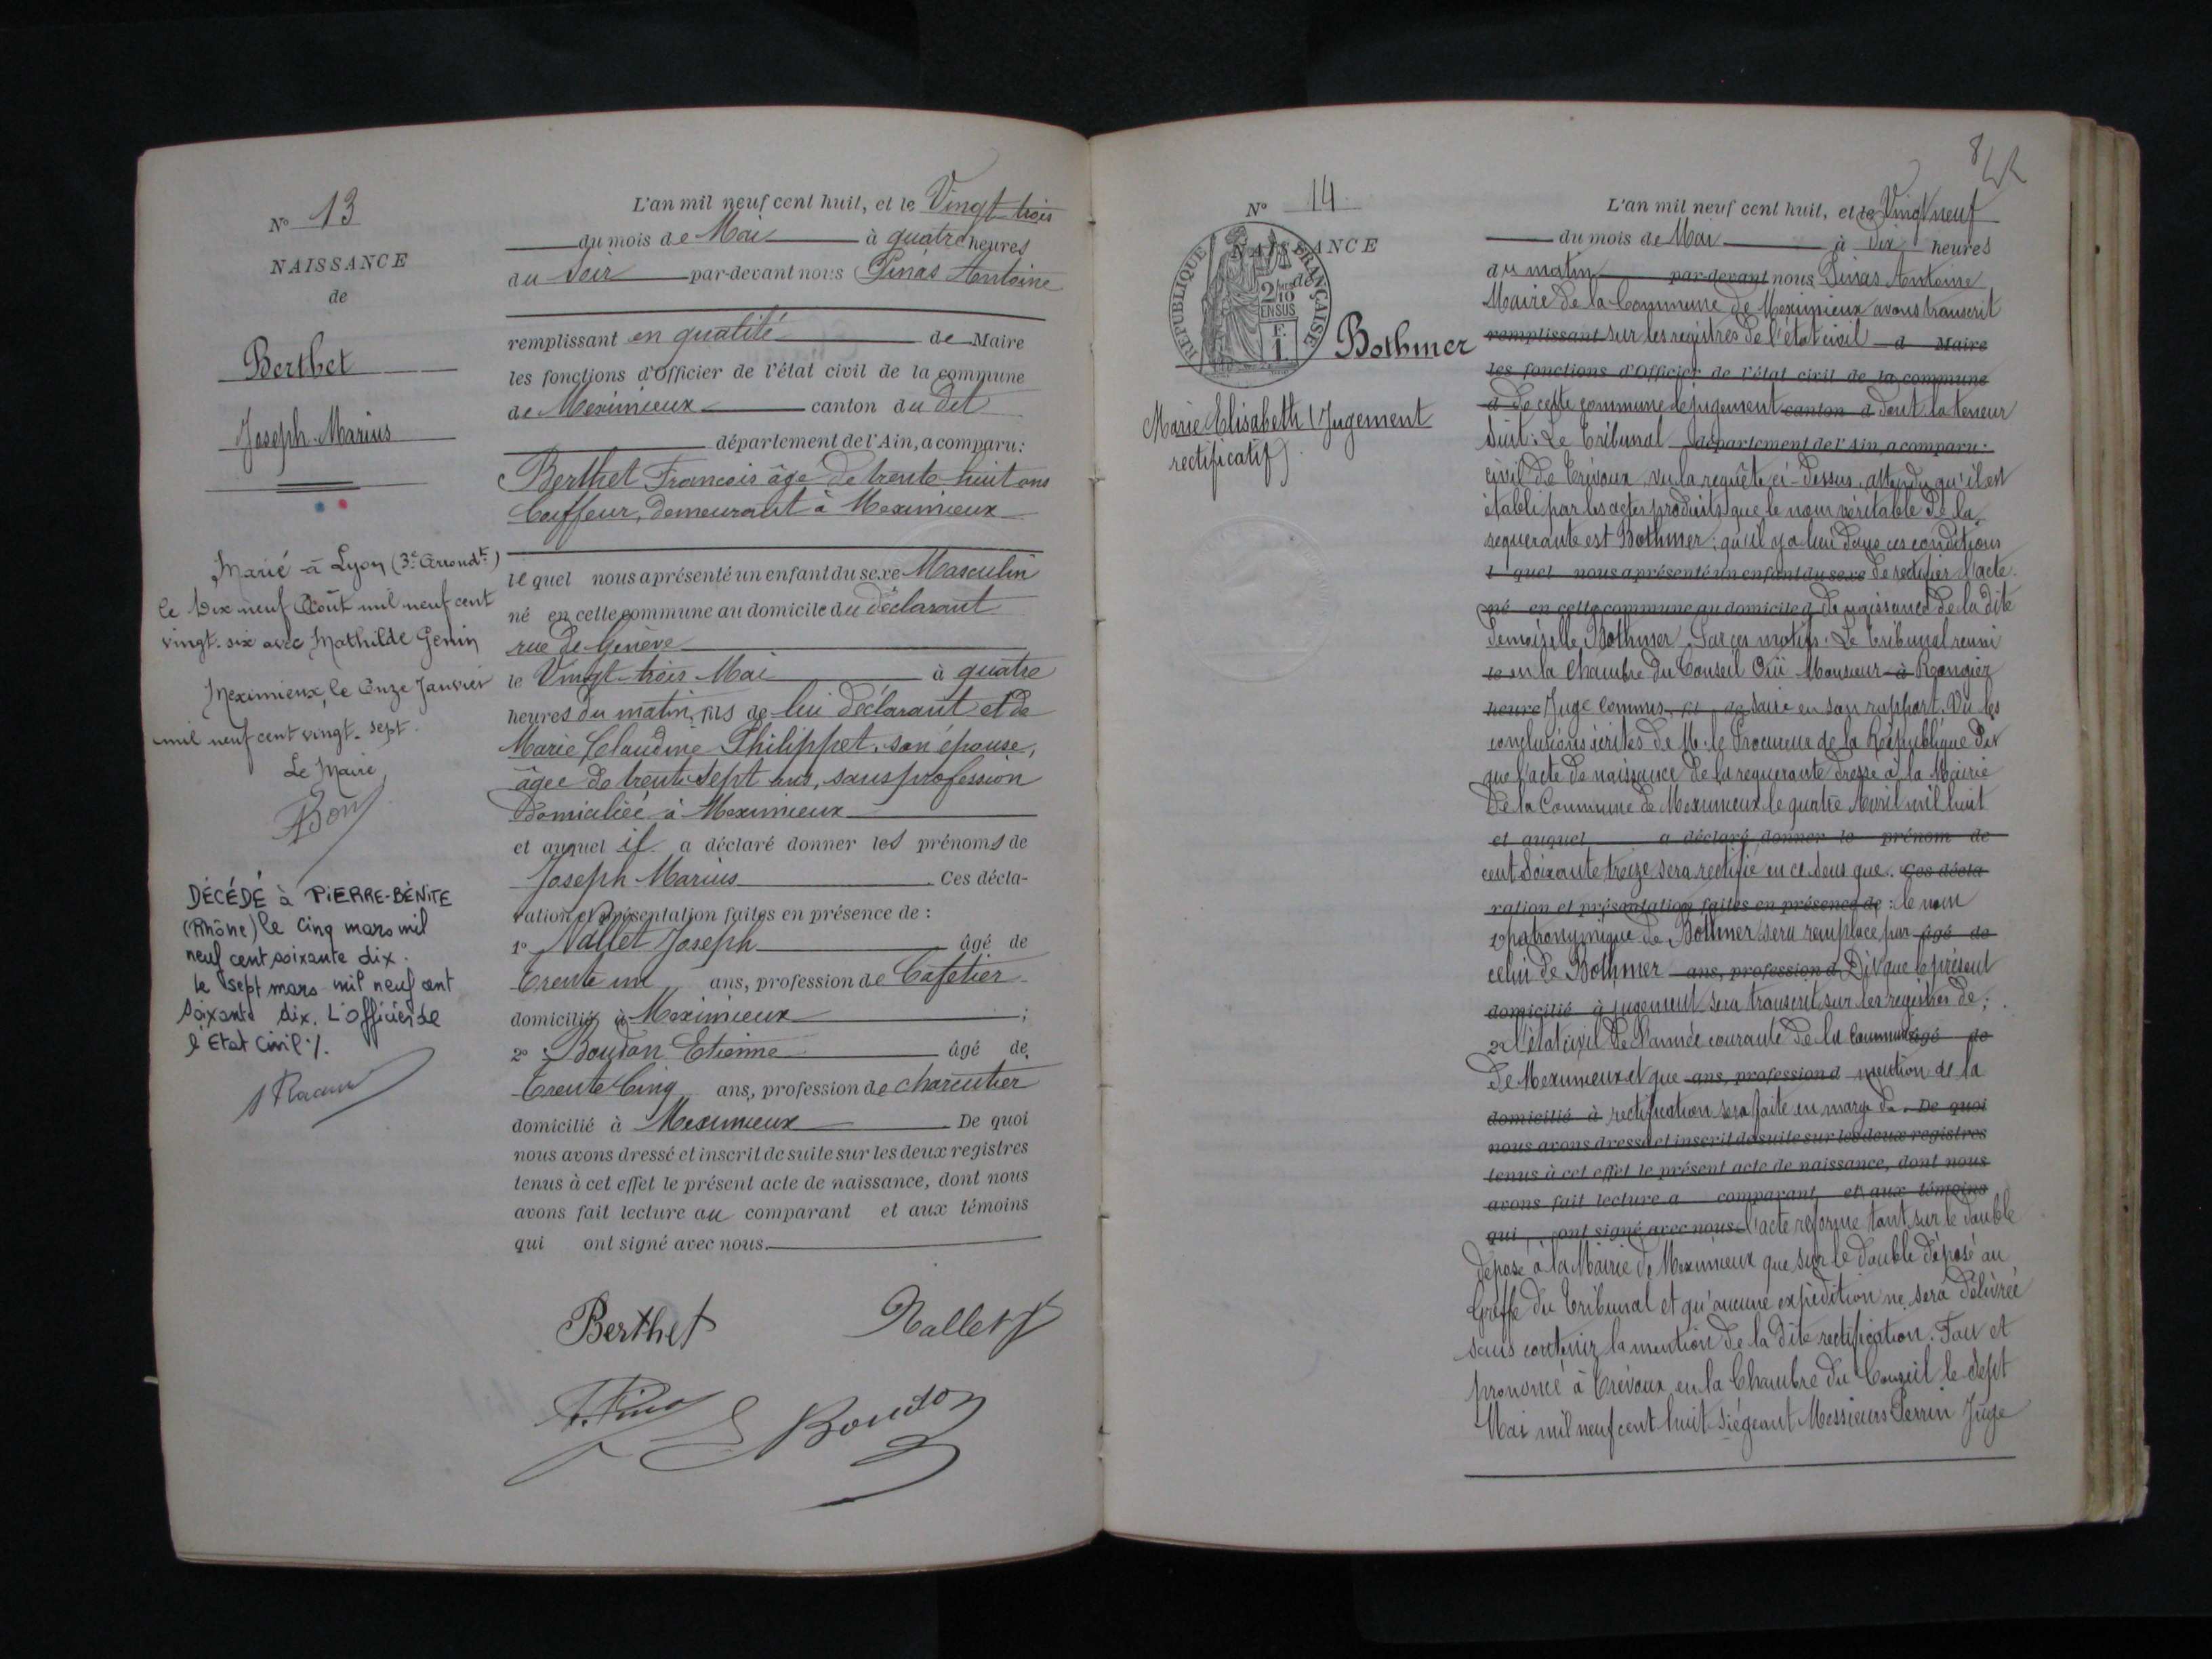 N° 13
NAISSANCE
de
Berthet
Joseph Marius
Marié à Lyon (3e Arrondt)
le Dix neuf Août mil neuf cent
vingt-six avec Mathilde Genin
Meximieux, le Onze Janvier
mil neuf cent vingt-sept.
Le Maire
DÉCÉDÉ à PIERRE-BÉNITE
(Rhône) le cinq mars mil
neuf cent soixante dix.
le sept mars mil neuf cent
soixante dix. L'officier de
l'Etat Civil ./.
L'an mil neuf cent huit, et le Vingt trois
du mois de Mai à quatre heures
du Soir par-devant nous Pinas Antoine
remplissant en qualité de Maire
les fonctions d'Officier de l'état civil de la commune
de Meximieux canton du dit
département de l'Ain, a comparu:
Berthet François âgé de trente huit ans
Coiffeur, demeurant à Meximieux
le quel nous a présenté un enfant du sexe Masculin
né en cette commune au domicile du déclarant
rue de Genève
le Vingt-trois Mai à quatre
heures du matin, fils de lui déclarant et de
Marie Claudine Philippet, son épouse,
âgée de trente sept ans, sans profession
domiciliée à Meximieux
et auquel il a déclaré donner les prénoms de
Joseph Marius Ces décla-
ration et présentation faites en présence de :
1° Nallet Joseph âgé de
trente un ans, profession de Cafetier
domicilié à Meximieux ;
2° Boudon Etienne âgé de
trente cinq ans, profession de charcutier
domicilié à Meximieux De quoi
nous avons dressé et inscrit de suite sur les deux registres
tenus à cet effet le présent acte de naissance, dont nous
avons fait lecture au comparant et aux témoins
qui ont signé avec nous.
Berthet Nallet J
A. Pinas E Boudon
8
N° 14
NAISSANCE
de
RÉPUBLIQUE FRANÇAISE
2/10 EN SUS
F. 1
Bothmer
Marie Elisabeth (Jugement
rectificatif)
L'an mil neuf cent huit, et le Vingt neuf
du mois de Mai à dix heures
du matin par-devant nous Pinas Antoine
Maire de la Commune de Meximieux avons transcrit
remplissant sur les registres de l'état civil d Maire
les fonctions d'Officier de l'état civil de la commune
d de cette commune le jugement canton d dont la teneur
suit : Le Tribunal département de l'Ain, a comparu:
civil de Trévoux vu la requête ci-dessus, attendu qu'il est
établi par les actes produits que le nom véritable de la
requerante est Bothmer ; qu'il y a lieu dans ces conditions
l quel nous a présenté un enfant du sexe de rectifier l'acte
né en cette commune au domicile d de naissance de la dite
demoiselle Bothmer. Par ces motifs. Le Tribunal réuni
le en la Chambre du Conseil Oui Monsieur à
heure Juge commis, fi de saire en son rapport. Vu les
conclusions écrites de M. le Procureur de la République Dit
que l'acte de naissance de la requerante dressé à la Mairie
de la Commune de Meximieux le quatre Avril mil huit
et auquel a déclaré donner le prénom de
cent soixante treize sera rectifié en ce sens que. Ces décla
ration et présentation faites en présence de : le nom
1° patronymique de Bottmer sera remplacé par âgé de
celui de Bothmer ans, profession d Dit que le présent
domicilié à jugement sera transcrit sur les registres de ;
2° l'état civil de l'année courante de la Commune âgé de
de Meximieux et que ans, profession d mention de la
domicilié à rectification sera faite en marge de. De quoi
nous avons dressé et inscrit de suite sur les deux registres
tenus à cet effet le présent acte de naissance, dont nous
avons fait lecture a comparant et aux témoins
qui ont signé avec nous l'acte reformé tant sur le double
déposé à la Mairie de Meximieux que sur le double déposé au
Greffe du Tribunal et qu'aucune expédition ne sera délivrée
sans contenir la mention de la dite rectification. Fait et
prononcé à Trévoux en la Chambre du Conseil le Sept
Mai mil neuf cent huit siégeant Messieurs Perrin Juge